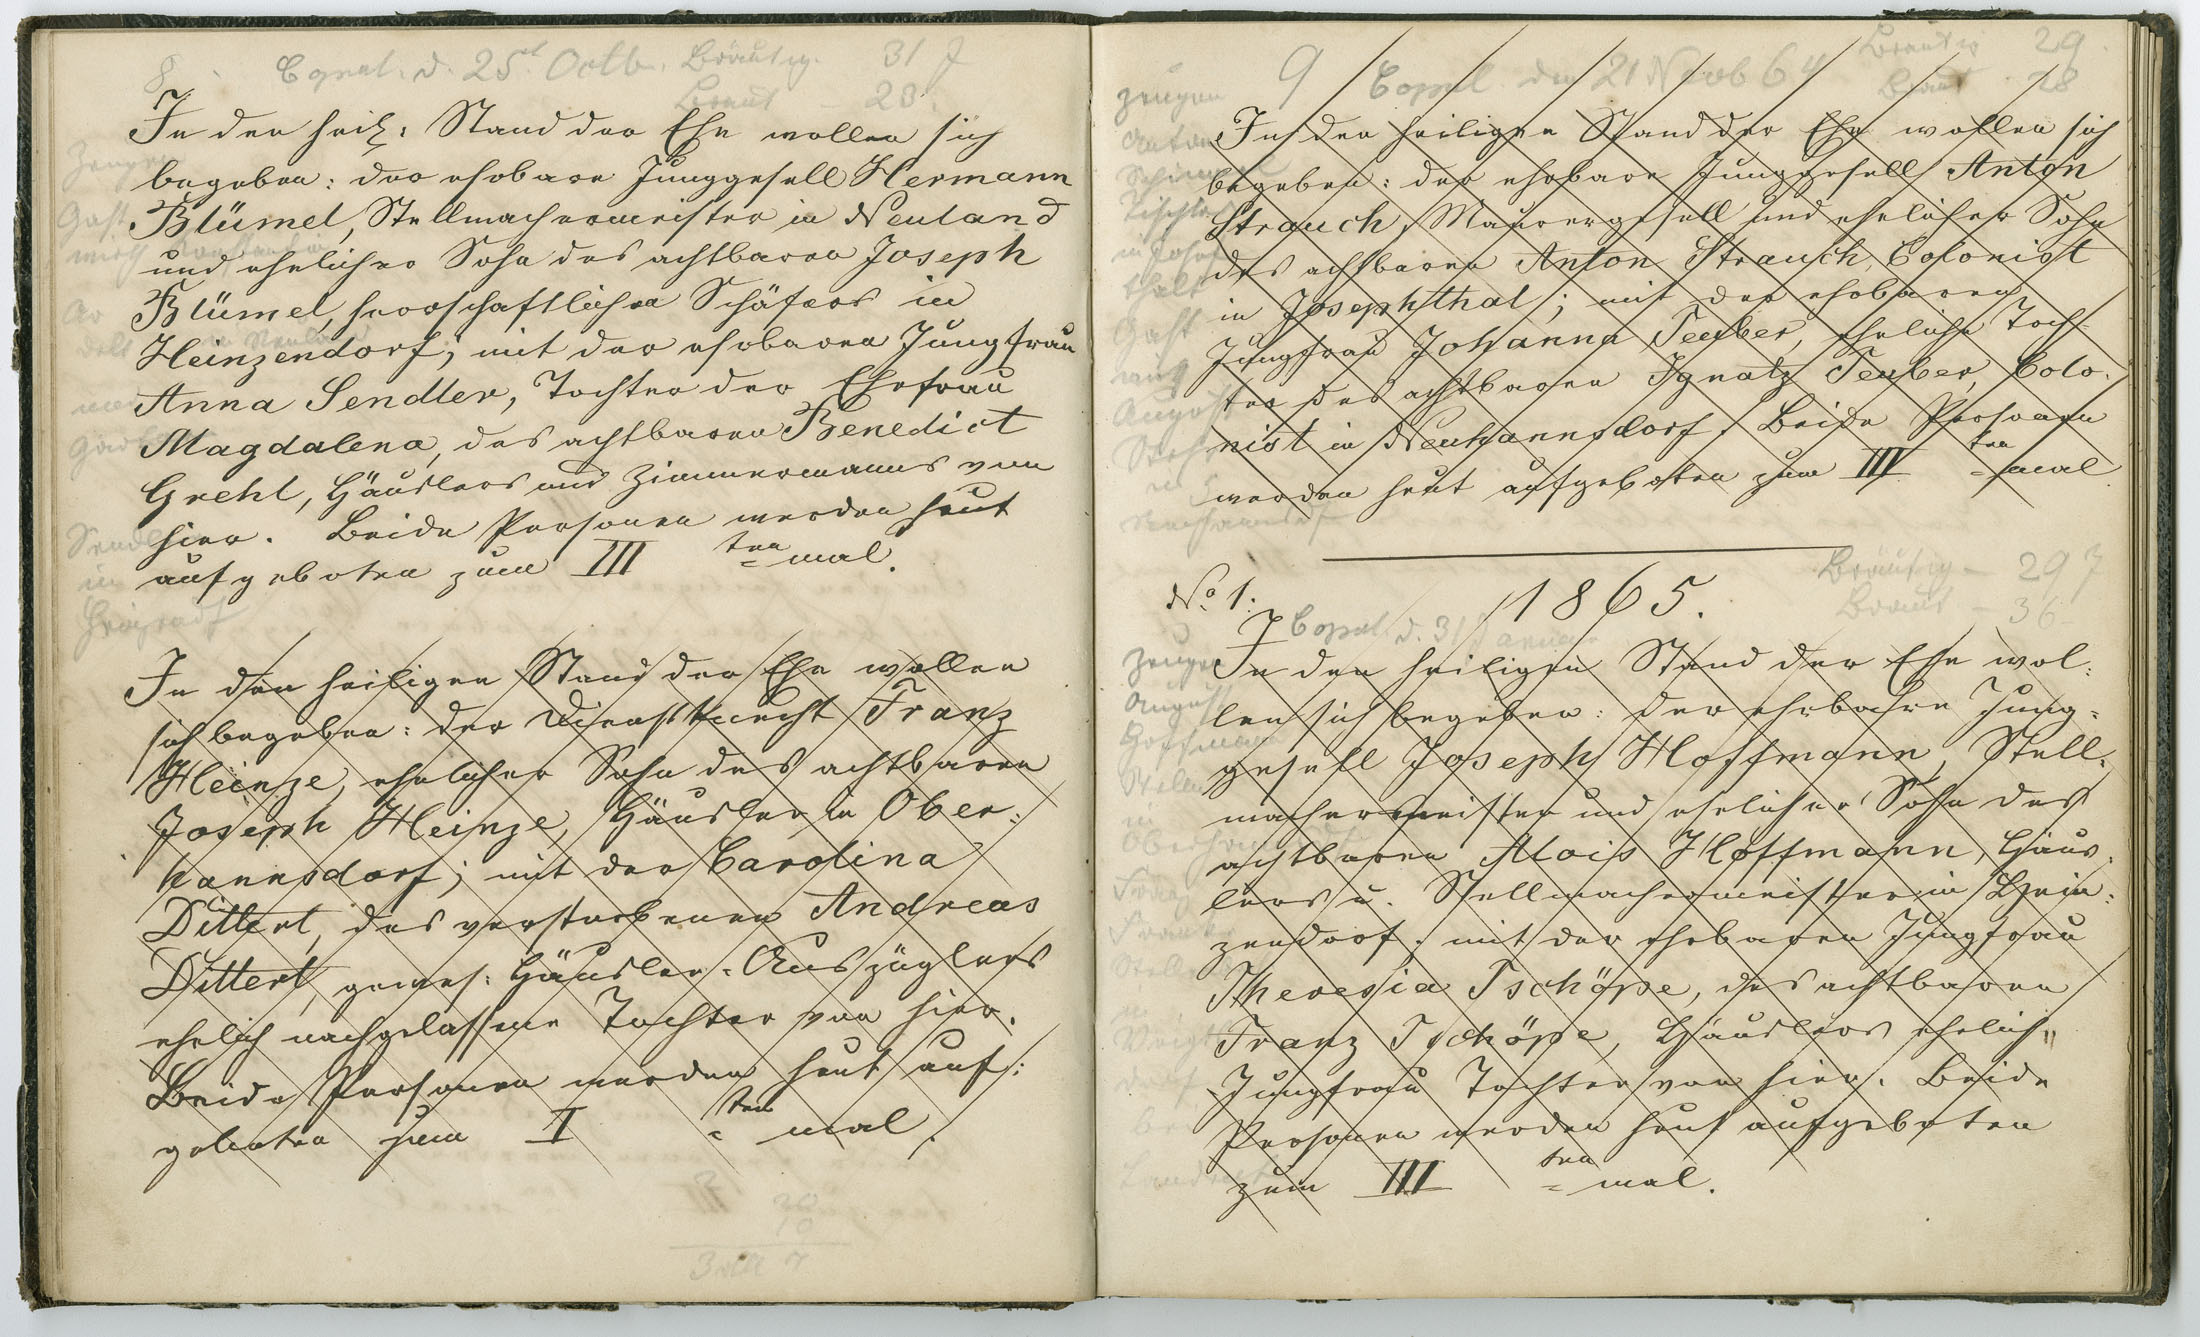 8. Copul. d. 25t Octb. Bräutig. 31 J
Braut - 23.
In den heil: Stand der Ehe wollen sich
begeben: der ehrbare Junggesell Hermann
Blümel, Stellmachermeister in Neuland
und ehelicher Sohn des achtbaren Joseph
Blümel, herrschaftlichen Schäfers in
Heinzendorf; mit der ehrbaren Jungfrau
Anna Sendler, Tochter der Ehefrau
Magdalena, des achtbaren Benedict
Grehl, Häuslers und Zimmermanns von
hier. Beide Personen werden heut
aufgeboten zum III ten = mal.
In den heiligen Stand der Ehe wollen
sich begeben: der Dienstknecht Franz
Heinze, ehelicher Sohn des achtbaren
Joseph Heinze, Häusler in Ober:
hannsdorf; mit der Carolina
Dittert, des verstorbenen Andreas
Dittert, gewes: Häusler-Auszüglers
ehelich nachgelassene Tochter von hier.
Beide Personen werden heut auf:
geboten zum I ten = mal.
9 Copul. den 21 Novb 64 Bräutig 29.
Braut 28
Zeugen
Anton
Tischler
In den heiligen Stand der Ehe wollen sich
begeben: der ehrbare Junggesell Anton
Strauch, Maurergesell und ehelicher Sohn
des achtbaren Anton Strauch, Colonist
in Josephthal; mit der ehrbaren
Jungfrau Johanna Teuber, eheliche Toch-
ter des achtbaren Ignatz Teuber, Colo-
nist in Neuhannsdorf. Beide Personen
werden heut aufgeboten zum III ten = mal
No 1. 1865.
Bräutig - 29 J
Braut - 36
Copul. d. 31 Januar
Zeugen
August
Hoffmann
In den heiligen Stand der Ehe wol:
len sich begeben: der ehrbare Jung-
gesell Joseph Hoffmann, Stell-
machermeister und ehelicher Sohn des
achtbaren Alois Hoffmann, Häus-
lers u. Stellmachermeister in Hein:
zendorf; mit der ehrbaren Jungfrau
Theresia Tschöpe, des achtbaren
Franz Tschöpe, Häuslers ehelich"
Jungfrau Tochter von hier. Beide
Personen werden heut aufgeboten
zum III ten = mal.